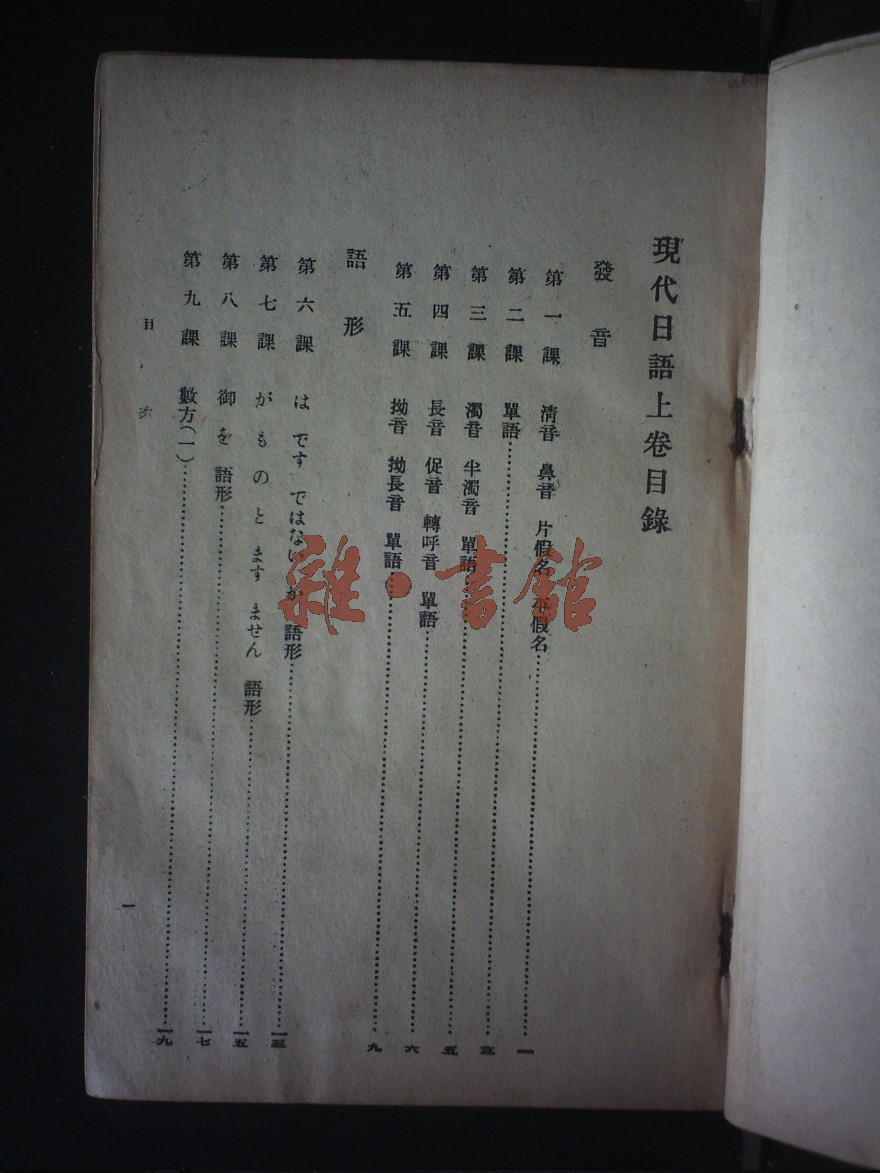 現代日語上卷目錄
發音
第一課 淸音 鼻音 片假名 平假名……一
第二課 單語……三
第三課 濁音 半濁音 單語……五
第四課 長音 促音 轉呼音 單語……六
第五課 拗音 拗長音 單語……九
語形
第六課 は です ではない か 語形……一三
第七課 が も の と ます ません 語形……一五
第八課 御 を 語形……一七
第九課 數方(一)……一九
目
一
雜·書館